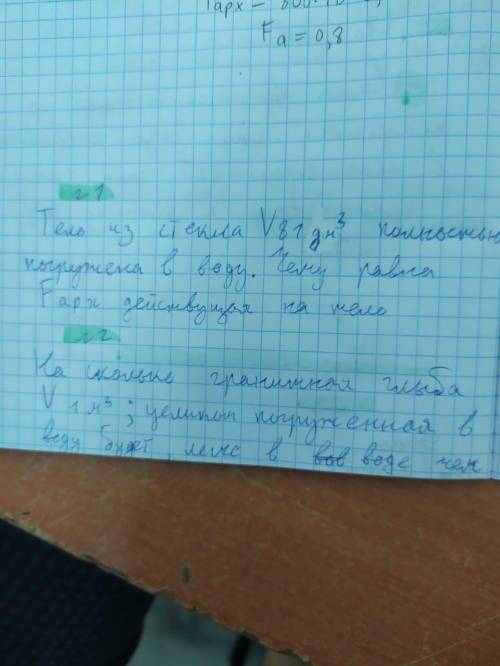 Fарх =
Fа = 0,8
№1
Тело из стекла V 81 дм³ полностью
погружена в воду. Чему равна
Fарх действущая на тело
№2
На сколько гранитная глыба
V 1 м³; целиком погруженная в
воду будет, легче в воде чем